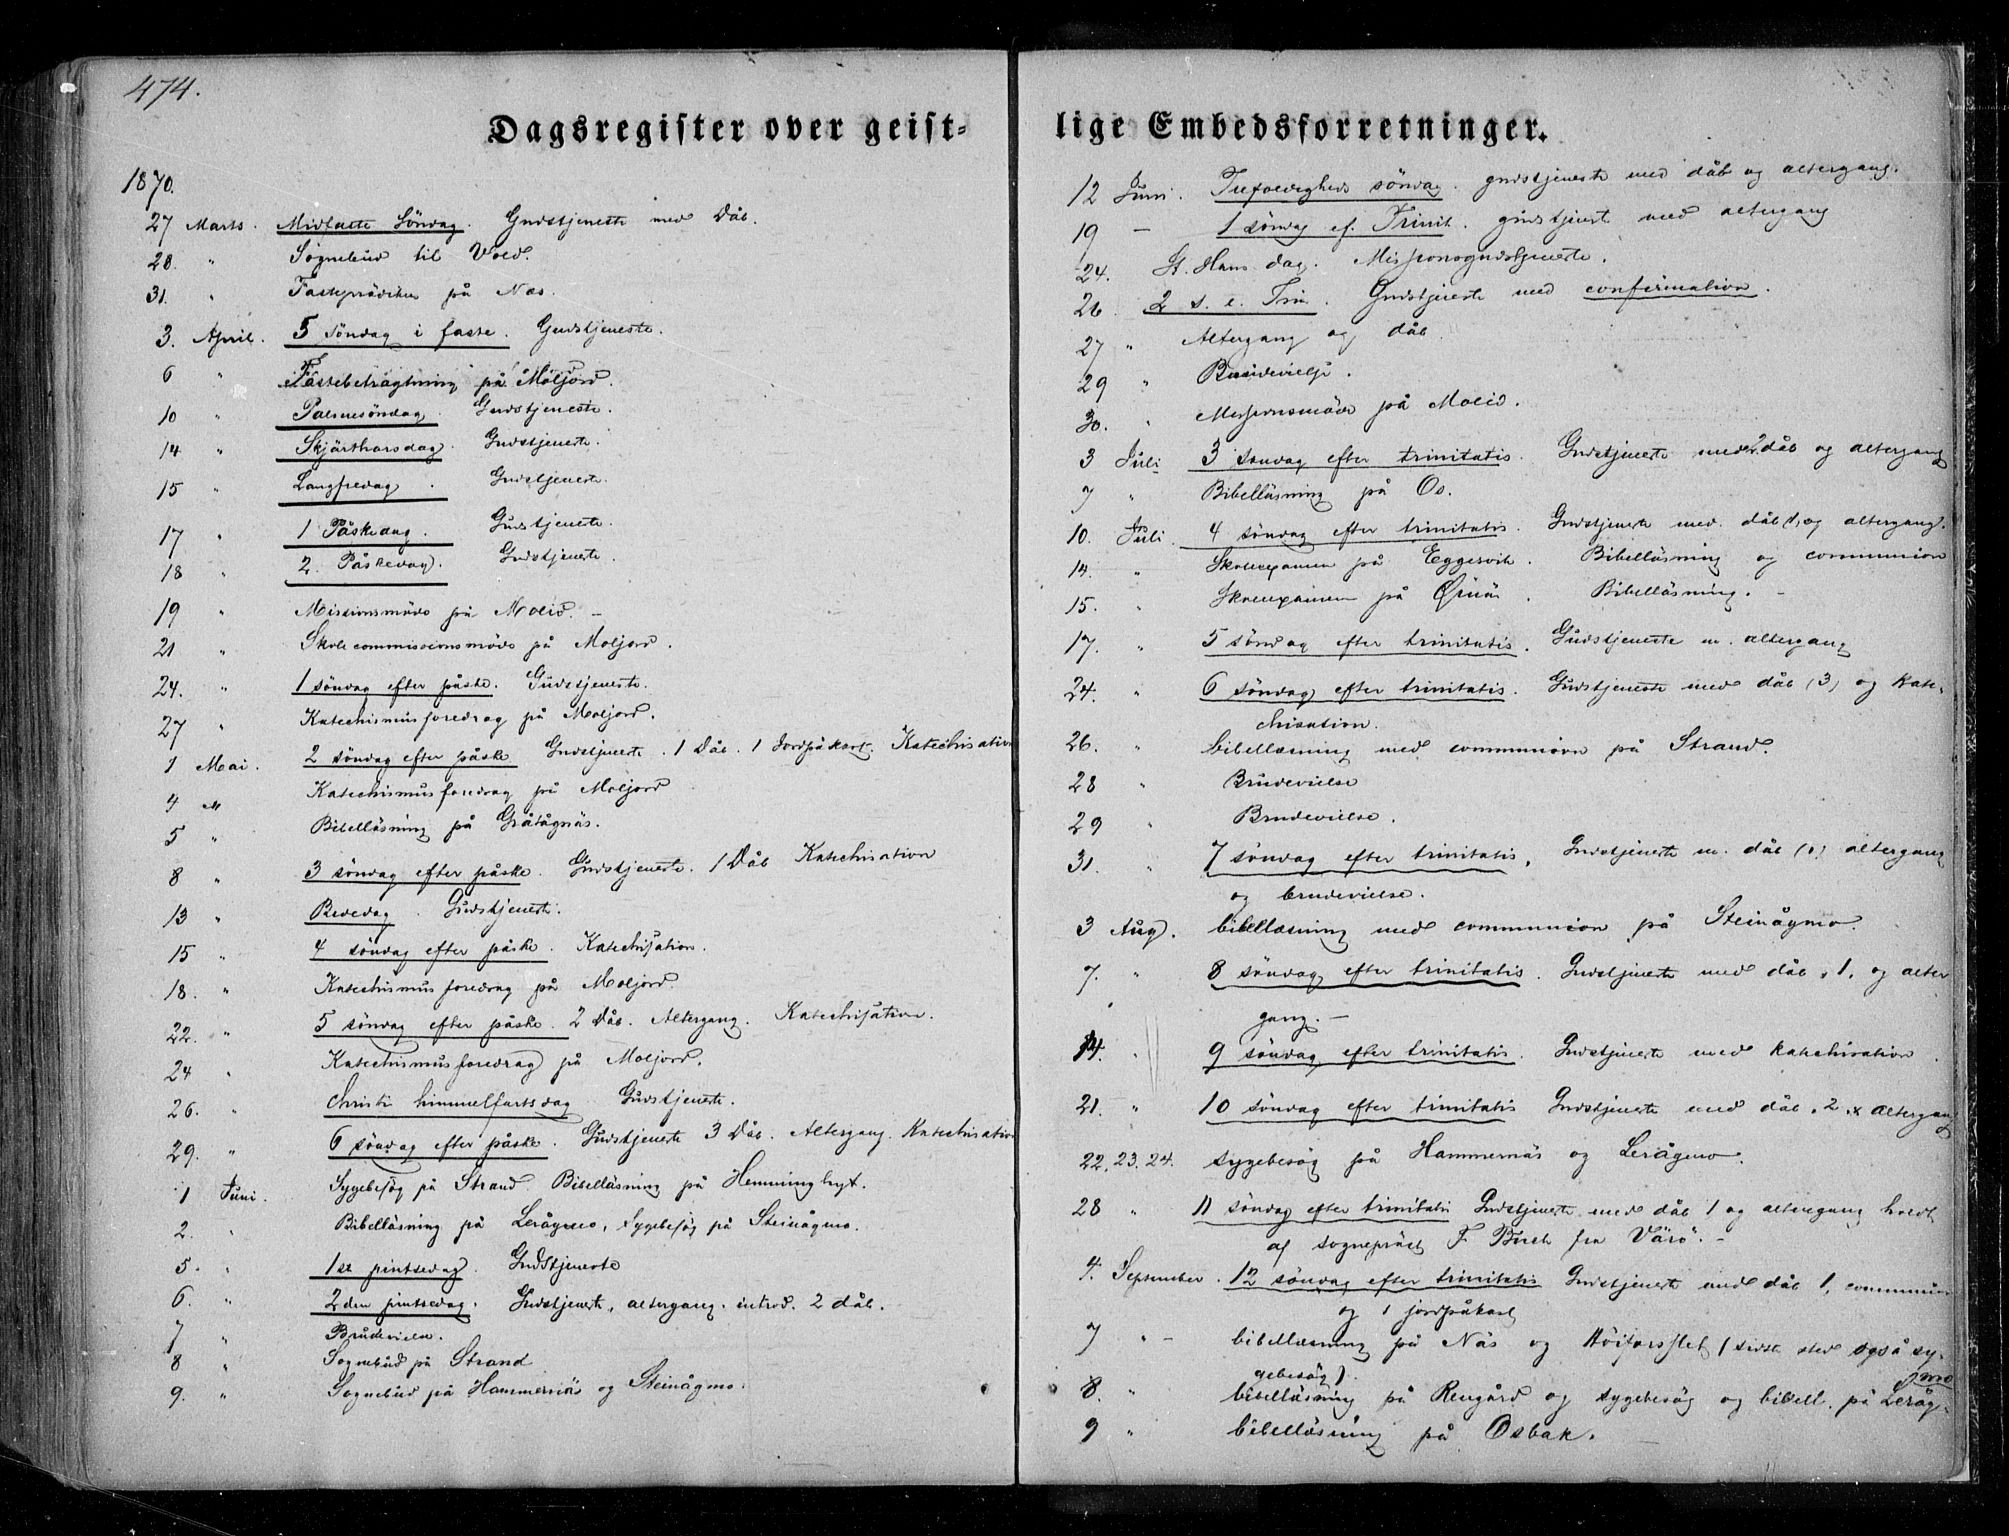 474.
Dagsregister over geist-
1870.
27 Marts. Midfaste Söndag. Gudstjeneste med Dåb.
28. " Sognebud til Vold.
31. " Fasteprädiken på Næs.
3. April. 5 söndag i faste. Gudstjeneste.
6 " Fastebetragtning på Moljord.
10 " Palmesöndag. Gudstjeneste.
14 " Skjärthorsdag. Gudstjeneste.
15 " Langfredag. Gudstjeneste.
17 " 1 Påskedag. Gudstjeneste.
18 " 2. Påskedag. Gudstjeneste.
19 " Missionsmöde på Moljord. -
21 " Skolecommissionsmöde på Moljord.
24. " 1 söndag efter påske. Gudstjeneste.
27 " Katechismusforedrag på Moljord.
1 Mai. 2 söndag efter påske Gudstjeneste. 1 Dåb. 1 Jordpåkast. Katechisation
4 " Katechismusforedrag på Moljord
5 " Bibelläsning på Gråtågnäs.
8 " 3 söndag efter påske. Gudstjeneste. 1 Dåb Katechisation
13 " Bededag. Gudstjeneste.
15 " 4 söndag efter påske. Katechisation.
18. " Katechismusforedrag på Moljord.
22. " 5 söndag efter påske. 2 Dåb. Altergang. Katechisation.
24 " Katechismusforedrag på Moljord.
26. " Christi himmelfartsdag Gudstjeneste.
29. " 6 söndag efter påske. Gudstjeneste 3 Dåb. Altergang. Katechisation
1 Juni. Sygebesög på Strand. Bibelläsning på
2. " Bibelläsning på Lerågmo, Sygebesög på Steinågmo.
5. " 1ste pintsedag. Gudstjeneste
6. " 2den pintsedag. Gudstjeneste, altergang. introd. 2 dåb.
7 " Brudevielse.
8 " Sognebud på Strand
9. " Sognebud på Hammernäs og Steinågmo.
lige Embedsforretninger.
12 Juni. Trefoldigheds söndag. gudstjeneste med dåb og altergang.
19 - 1 söndag ef. Trinit. gudstjenest med altergang
24. St. Hans dag. Missionsgudstjeneste.
26 2 s. e. Trin. Gudstjeneste med confirmation.
27 " Altergang og dåb
29 " Brudevielse.
30. " Missionsmöde på Moljord.
3 Juli 3 söndag efter trinitatis. Gudstjeneste med 2 dåb og altergang
7 " Bibelläsning på Os.
10. Juli. 4 söndag efter trinitatis. Gudstjeneste med. dåb 1, og altergang.
14. " Skoleexamen på Eggesvik. Bibelläsning og communion
15. " Skoleexamen på . Bibelläsning. -
17. " 5 söndag efter trinitatis. Gudstjeneste m. altergang
24. " 6 söndag efter trinitatis. Gudstjeneste med dåb (3) og kate-
chisation.
26. " bibellæsning med communion på Strand.
28 " Brudevielse
29 " Brudevielse.
31. " 7 söndag efter trinitatis. Gudstjeneste m. dåb (1) altergang
og brudevielse.
3 Aug. bibellæsning med communion på Steinågmo.
7. " 8 söndag efter trinitatis. Gudstjeneste med dåb, 1, og alter
gang. -
14. " 9 söndag efter trinitatis. Gudstjeneste med katechisation.
21. " 10 söndag efter trinitatis Gudstjeneste med dåb, 2, x altergang
22, 23. 24. sygebesög på Hammernäs og Lerågmo.
28 " 11 söndag efter trinitatis Gudstjeneste med dåb 1 og altergang holdt
af sognepräst F. Buch fra Värö. -
4. September. 12 söndag efter trinitatis Gudstjeneste med dåb 1, communion
og 1 jordpåkast
7 " - bibellæsning på Näs og Höiforsslet (sidste sted også sy-
gebesög).
8. " bibelläsning på Rengård og sygebesög og bibell. på Leråg-
mo
9 " bibelläsning på Osbak.